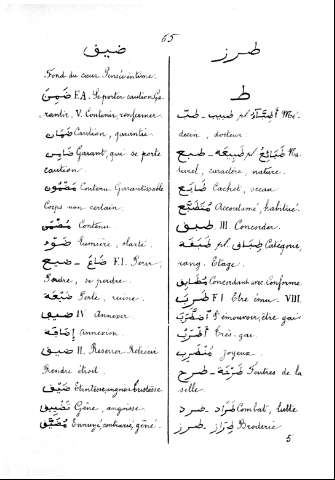 65
ضيق
طرز
Fond du cœur. Pensée intime.
ضَمِنَ F.A. Se porter caution Ga-
rantir. V. Contenir, renfermer
ضَمَان Caution, garantie
ضَامِن Garant, que se porte
caution
مَضْمُون Contenu. Garantissable
Corps non certain.
Contenu
ضَوْء Lumière, clarté.
ضَاعَ - ضيع F.I. Périr;
Perdre, se perdre.
ضَيْعَة Perte, ruine.
ضيف IV Annexer
إِضَافَة Annexion.
ضيق II. Resserrer Rétrécir
Rendre étroit.
ضِيق Etroitesse, angoisse tristesse
تَضْيِيق Gêne, angoisse.
مُضَيَّق Ennuyé, contrarié, gêné.
ط
طبّ - طبيب pl. أَطِبَّاء Mé-
decin, docteur
طبع - طَبِيعَة pl. طَبَائِع Na-
turel, caractère, nature.
طَابَع Cachet, sceau
Accoutumé, habitué.
طبق III. Concorder.
طَبَقَة pl. طِبَاق Catégorie,
rang. Etage.
مُطَابِق Concordant avec. Conforme
طَرِبَ F.I Etre ému. VIII.
S'émouvoir, être gai
Très-gai
Joyeux.
طرح - طَرْحَة Feutres de la
selle.
طرد - طَرَاد Combat, lutte
طرز - طِرَاز Broderie
5